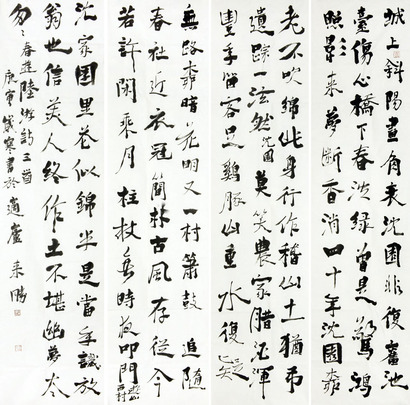 城上斜陽畫角哀沈園非復舊池
臺傷心橋下春波綠曾是驚鴻
照影來夢斷香消四十年沈園柳
老不吹綿此身行作稽山土猶弔
遺蹤一泫然 沈園 莫笑農家臘酒渾
豐年留客足雞豚山重水復疑
無路柳暗花明又一村簫鼓追隨
春社近衣冠簡樸古風存從今
若許閑乘月拄杖無時夜叩門 遊山西村
沈家園里花似錦半是當年識放
翁也信美人終作土不堪幽夢太
匆々 春遊 陸游詩三首
庚寅歲寒書於適廬